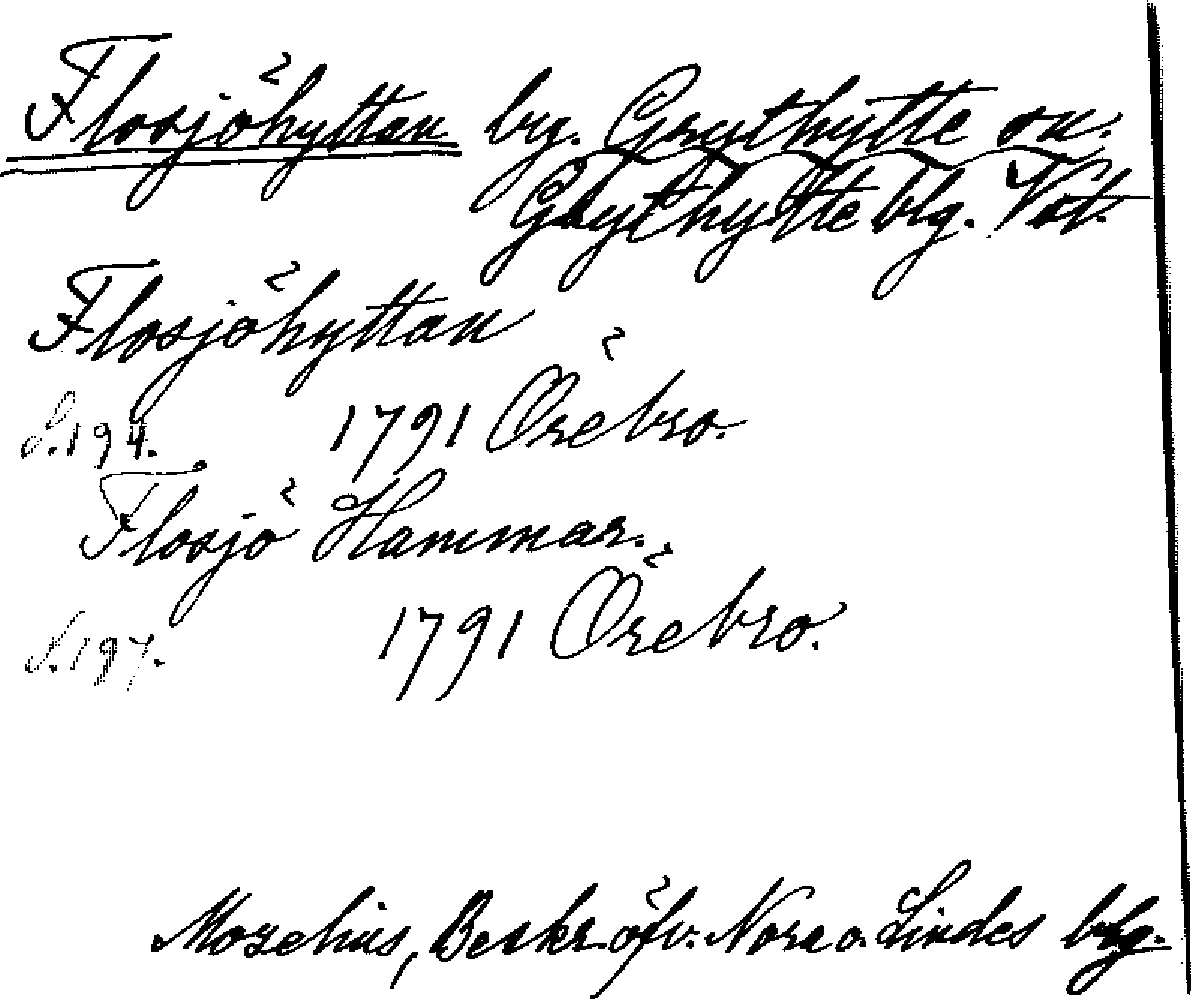 Flosjöhyttan by. Grythytte sn.
Grythytte blg. Vstl.
Flosjöhyttan
S.194. 1791 Örebro.
Flosjö Hammar.
S.197. 1791 Örebro.
Mozelius, Beskr. öfv. Nora o. Lindes blg.